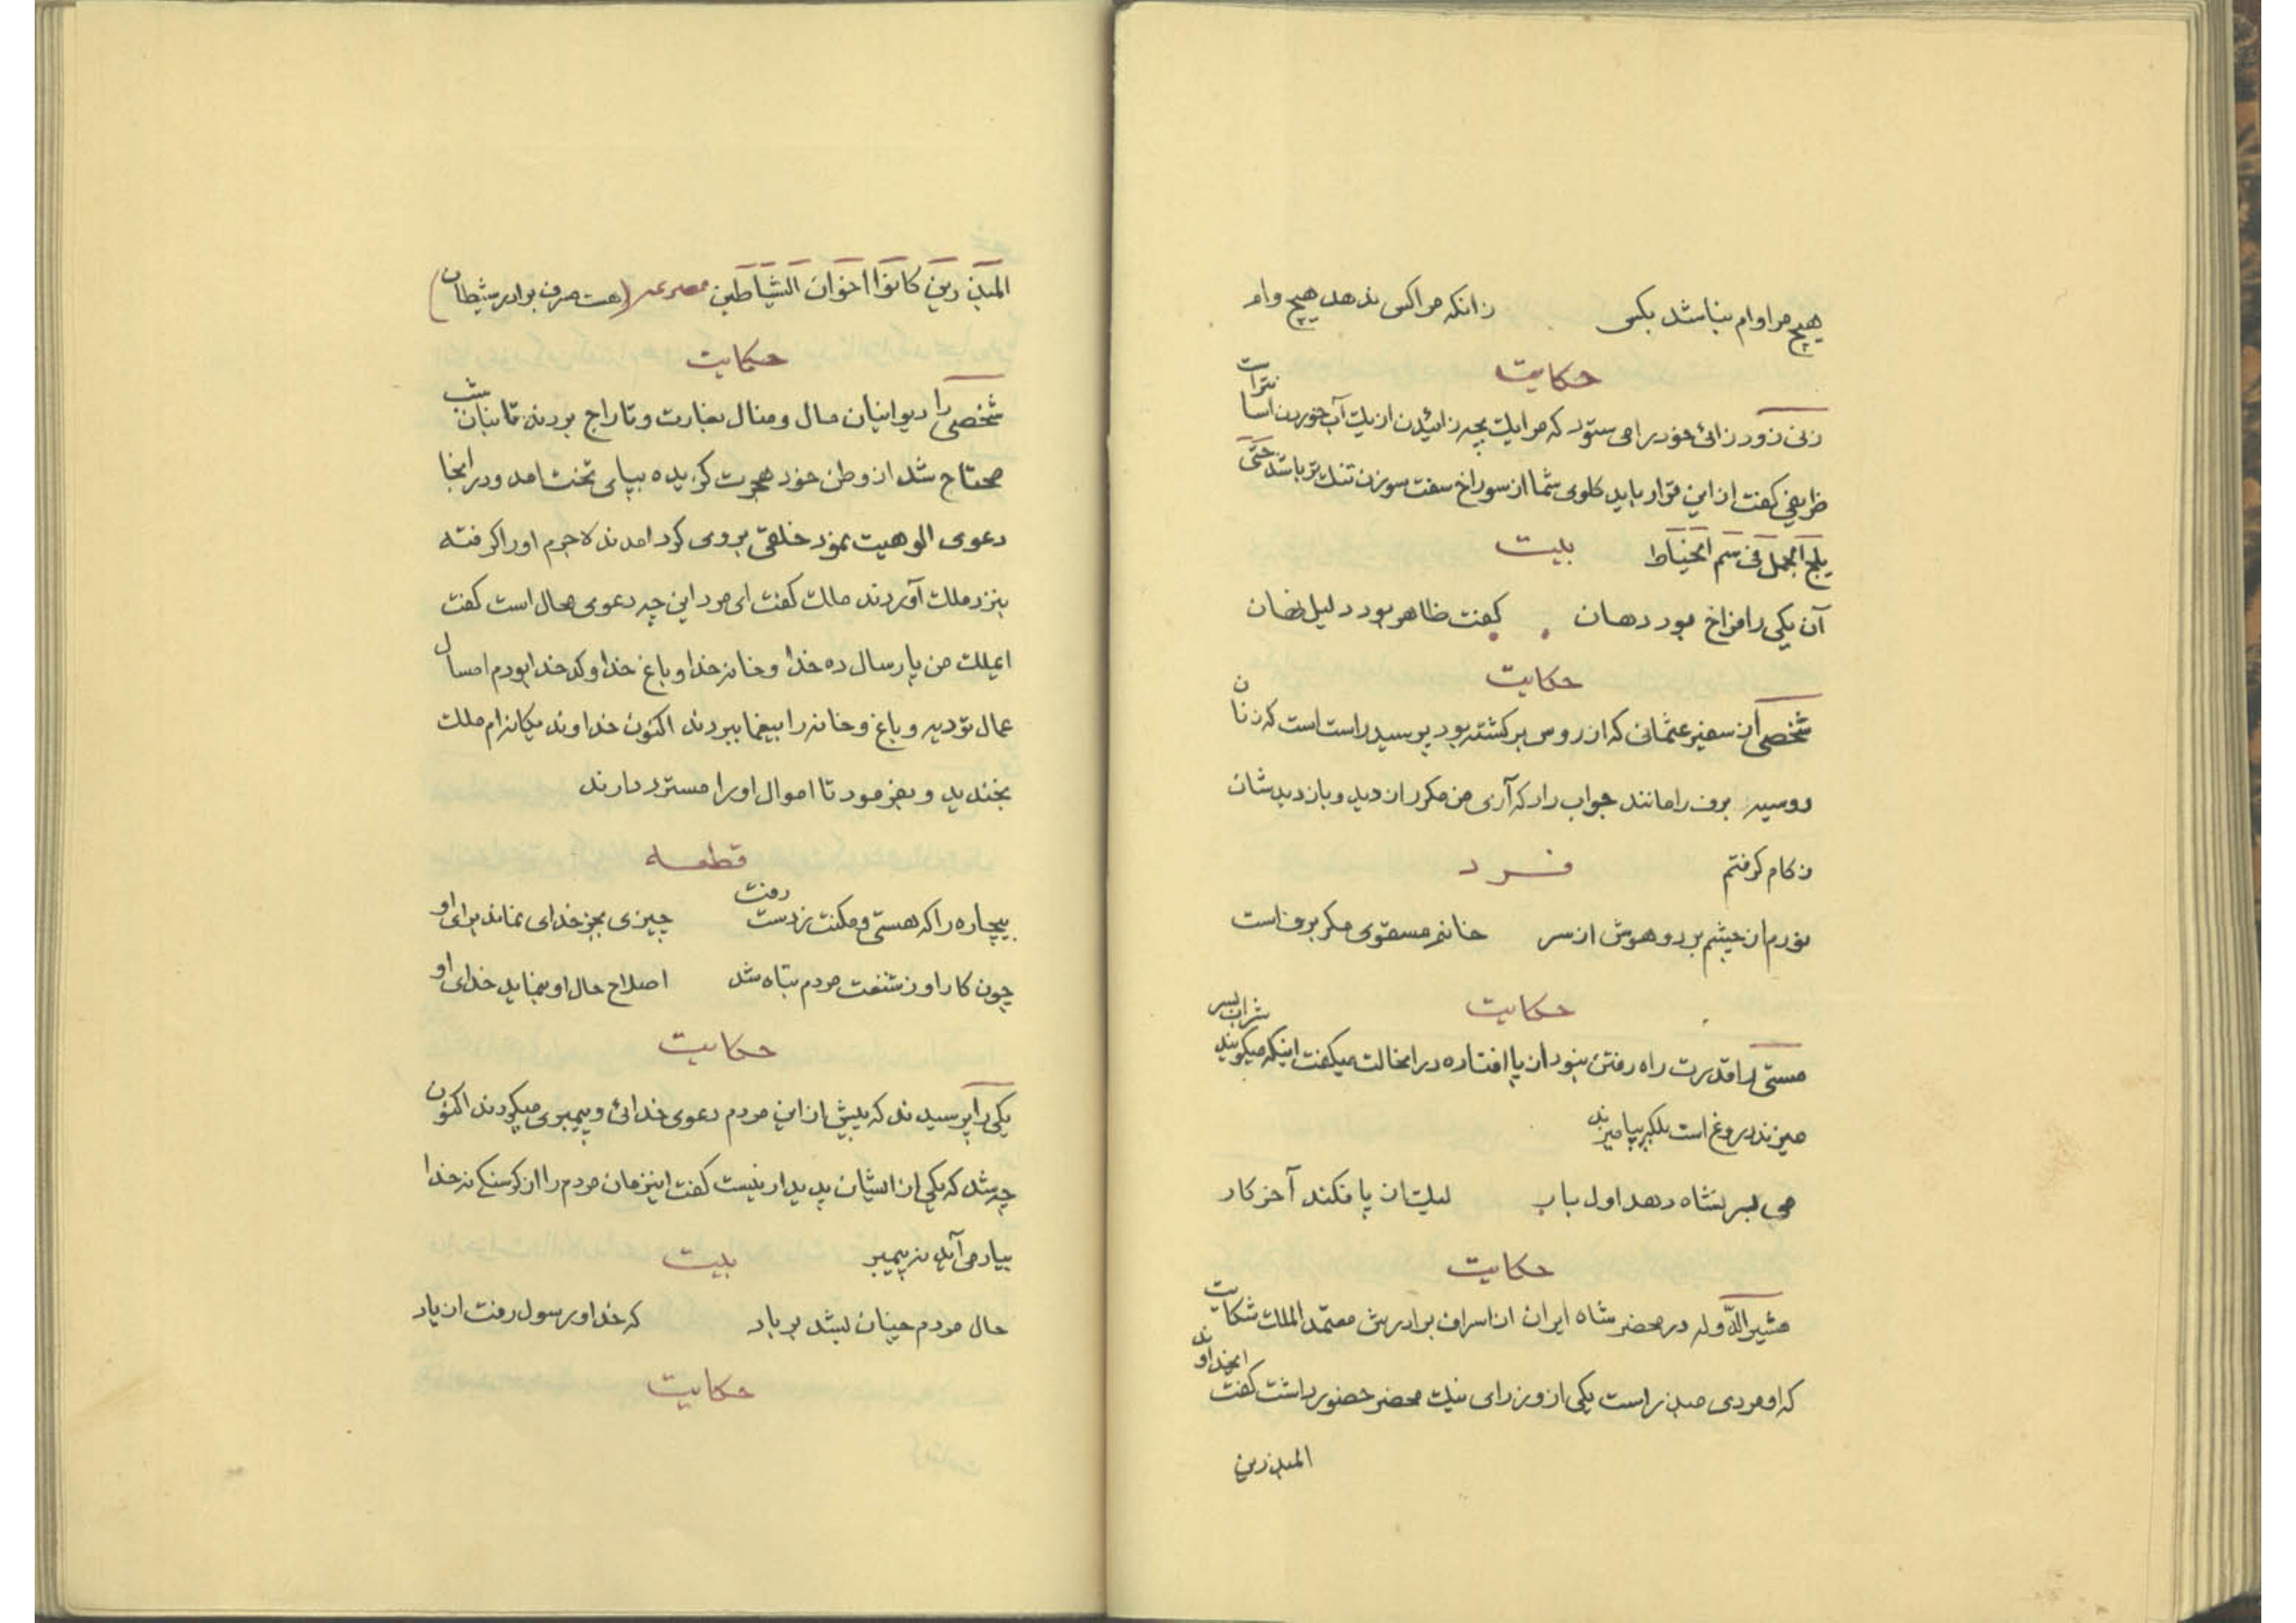 هیچ مرا وام نباشد بکس زانکه مرا کس ندهد هیچ وام
حکایت
زنی زود زائی خود را می ستود که مرا یک بچه زائیدن از یک آب خوردن اسانتر است
ظریفی گفت از این قرار باید گلوی شما از سوراخ سفت سوزن تنک تر باشد حَتّی
یلج الجمل فی سم الخیاط بیت
آن یکی را فراخ بود دهان گفت ظاهر بود دلیل نهان
حکایت
شخصی از سفیر عثمانی که از روس برگشته بود پرسید راست است که زنان
روسیه برف را مانند جواب داد که آری من مکرر از دید و بازدیدشان
زکام گرفتم فرد
نورم از چشم برد و هوش از سر خانم مسقوی مکر برف است
حکایت
مستی را قدرت راه رفتن نبود از پا افتاده در انحالت میگفت اینکه میگویند شراب بسر
میزند دروغ است بلکه بپا میزند
می بسر نشاه دهد اول بار لیک از پا فکند آخر کار
حکایت
مشیر الدَّوله در محضر شاه ایران از اسراف برادرش معتمد الملک شکایت
که او مردی مبذر است یکی از وزرای نیک محضر حضور داشت گفت ایخداوند
المبذرین
المبذرین کانوا اخوان الشیاطین مصرعه (هست مسرف برادر شیطان)
حکایت
شخصی را دیوانیان مال و منال بغارت و تاراج بردند تا بنان شب
محتاج شد از وطن خود هجرت کزیده بپای تخت امد و در انجا
دعوی الوهیت نمود خلقی بروی کرد امدند لاجرم او را گرفته
بنزد ملک آوردند ملک گفت ای مرد این چه دعوی محال است گفت
ایملک من پارسال ده خدا و خانه خدا و باغ خدا و کدخدا بودم امسال
عمال تو دیه و باغ و خانه را بیغما ببردند اکنون خداوند یکانه ام ملک
بخندید و بفرمود تا اموال او را مسترد دارند
قطعه
بیچاره را که هستی و مکنت ز دست رفت چیزی بجز خدای نماند برای او
چون کار او ز شنعت مردم تباه شد اصلاح حال او بنماید خدای او
حکایت
یکی را پرسیدند که پیش از این مردم دعوی خدائی و پیمبری میکردند اکنون
چه شد که یکی از ایشان پدیدار نیست گفت اینزمان مردم را از کرسنکی نه خدا
بیاد می آید نه پیمبر بیت
حال مردم چنان بشد بر باد که خدا و رسول رفت از یاد
حکایت